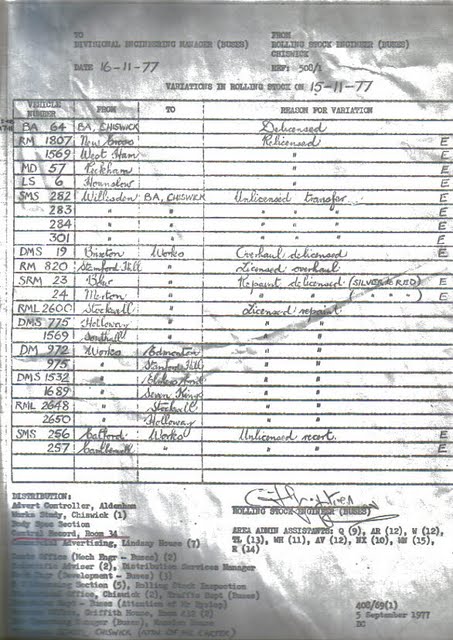 TO FROM
DIVISIONAL ENGINEERING MANAGER (BUSES) ROLLING STOCK ENGINEER (BUSES)
CHISWICK
DATE 16-11-77 REF: 508/1
VARIATIONS IN ROLLING STOCK ON 15-11-77
VEHICLE NUMBER FROM TO REASON FOR VARIATION
BA 64 BA, CHISWICK Delicensed
RM 1807 New Cross Relicensed E
1569 West Ham " E
MD 57 Peckham " E
LS 6 Hounslow " E
SMS 282 Willesden BA, CHISWICK Unlicensed transfer E
283 " " " " E
284 " " " " E
301 " " " " E
DMS 19 Brixton Works Overhaul delicensed E
RM 820 Stamford Hill " Licensed overhaul
SRM 23 Blue " Repaint delicensed (SILVER to RED) E
24 Merton " " " ( " " " ) E
RML 2600 Stockwell " Licensed repaint
DMS 775 Holloway " " "
1569 Southall " " "
DM 972 Works Edmonton " "
975 " Stamford Hill " "
DMS 1532 " "
1689 " Seven Kings " "
RML 2648 " Stockwell " "
2650 " Holloway " "
SMS 256 Catford Works Unlicensed recert. E
257 Camberwell " " " E
DISTRIBUTION:
Advert Controller, Aldenham
Works Study, Chiswick (1)
Body Spec Section
Central Record, Room 34
Advertising, Lindsay House (7)
Office (Mech Engr - Buses) (2)
Adviser (2), Distribution Services Manager
(Development - Buses) (3)
Section (5), Rolling Stock Inspection
Office, Chiswick (2), Traffic Dept (Buses)
Dept - Buses (Attention of Mr
Griffith House, Room
Manager (Buses),
CHISWICK (ATTN. OF MR.
ROLLING STOCK ENGINEER (BUSES)
AREA ADMIN ASSISTANTS: Q (9), AR (12), W (12),
TL (13), WH (11), AV (12), NX (10), MW (15),
R (14)
408/69(1)
5 September 1977
DG